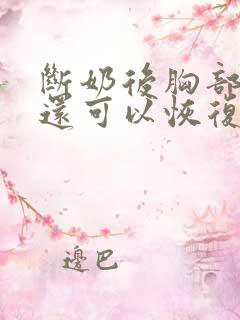 斷奶後胸部
還可以恢復
邊巴